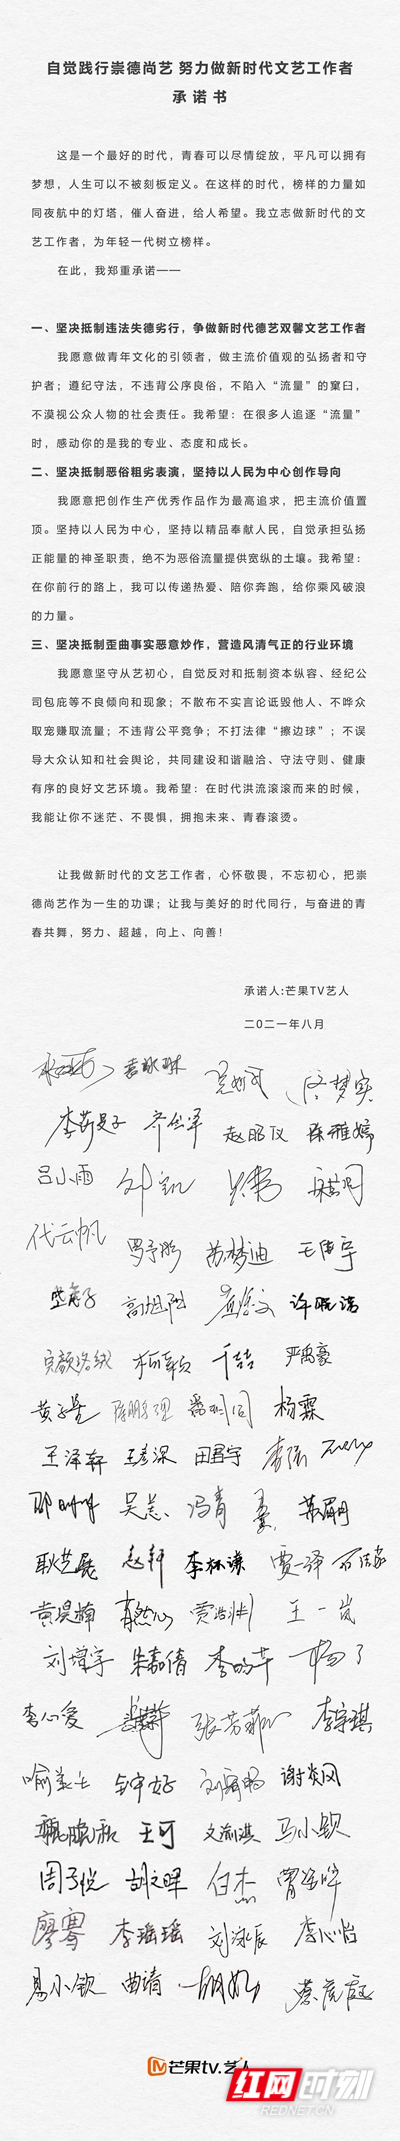 自觉践行崇德尚艺 努力做新时代文艺工作者
承 诺 书
这是一个最好的时代，青春可以尽情绽放，平凡可以拥有
梦想，人生可以不被刻板定义。在这样的时代，榜样的力量如
同夜航中的灯塔，催人奋进，给人希望。我立志做新时代的文
艺工作者，为年轻一代树立榜样。
在此，我郑重承诺——
一、坚决抵制违法失德劣行，争做新时代德艺双馨文艺工作者
我愿意做青年文化的引领者，做主流价值观的弘扬者和守
护者；遵纪守法，不违背公序良俗，不陷入“流量”的窠臼，
不漠视公众人物的社会责任。我希望：在很多人追逐“流量”
时，感动你的是我的专业、态度和成长。
二、坚决抵制恶俗粗劣表演，坚持以人民为中心创作导向
我愿意把创作生产优秀作品作为最高追求，把主流价值置
顶。坚持以人民为中心，坚持以精品奉献人民，自觉承担弘扬
正能量的神圣职责，绝不为恶俗流量提供宽纵的土壤。我希望：
在你前行的路上，我可以传递热爱、陪你奔跑，给你乘风破浪
的力量。
三、坚决抵制歪曲事实恶意炒作，营造风清气正的行业环境
我愿意坚守从艺初心，自觉反对和抵制资本纵容、经纪公
司包庇等不良倾向和现象；不散布不实言论诋毁他人、不哗众
取宠赚取流量；不违背公平竞争；不打法律“擦边球”；不误
导大众认知和社会舆论，共同建设和谐融洽、守法守则、健康
有序的良好文艺环境。我希望：在时代洪流滚滚而来的时候，
我能让你不迷茫、不畏惧，拥抱未来、青春滚烫。
让我做新时代的文艺工作者，心怀敬畏，不忘初心，把崇
德尚艺作为一生的功课；让我与美好的时代同行，与奋进的青
春共舞，努力、超越，向上、向善！
承诺人:芒果TV艺人
二〇二一年八月
袁咏琳
赵昭仪 陈雅婷
吕小雨
代云帆
罗予彤 苏梦迪 王伟宇
高旭阳 许晓诺
完颜洛绒 千喆 严禹豪
杨霖
王泽轩 王彦深 田君宇
吴恙 冯青 苏眉月
耿艺展 赵轩 李林谦 贾一译
黄堤楠 王一岚
刘增宇 朱嘉倩 杨了
李心爱 张芳菲 李宇琪
钟史好 谢炎风
王可 文渝淇 马小钦
周子悦 胡文晖 白杰
廖骞 李瑶瑶 刘泳辰 李心怡
易小钦 曲靖
芒果tv.艺人
红网时刻
REDNET.CN